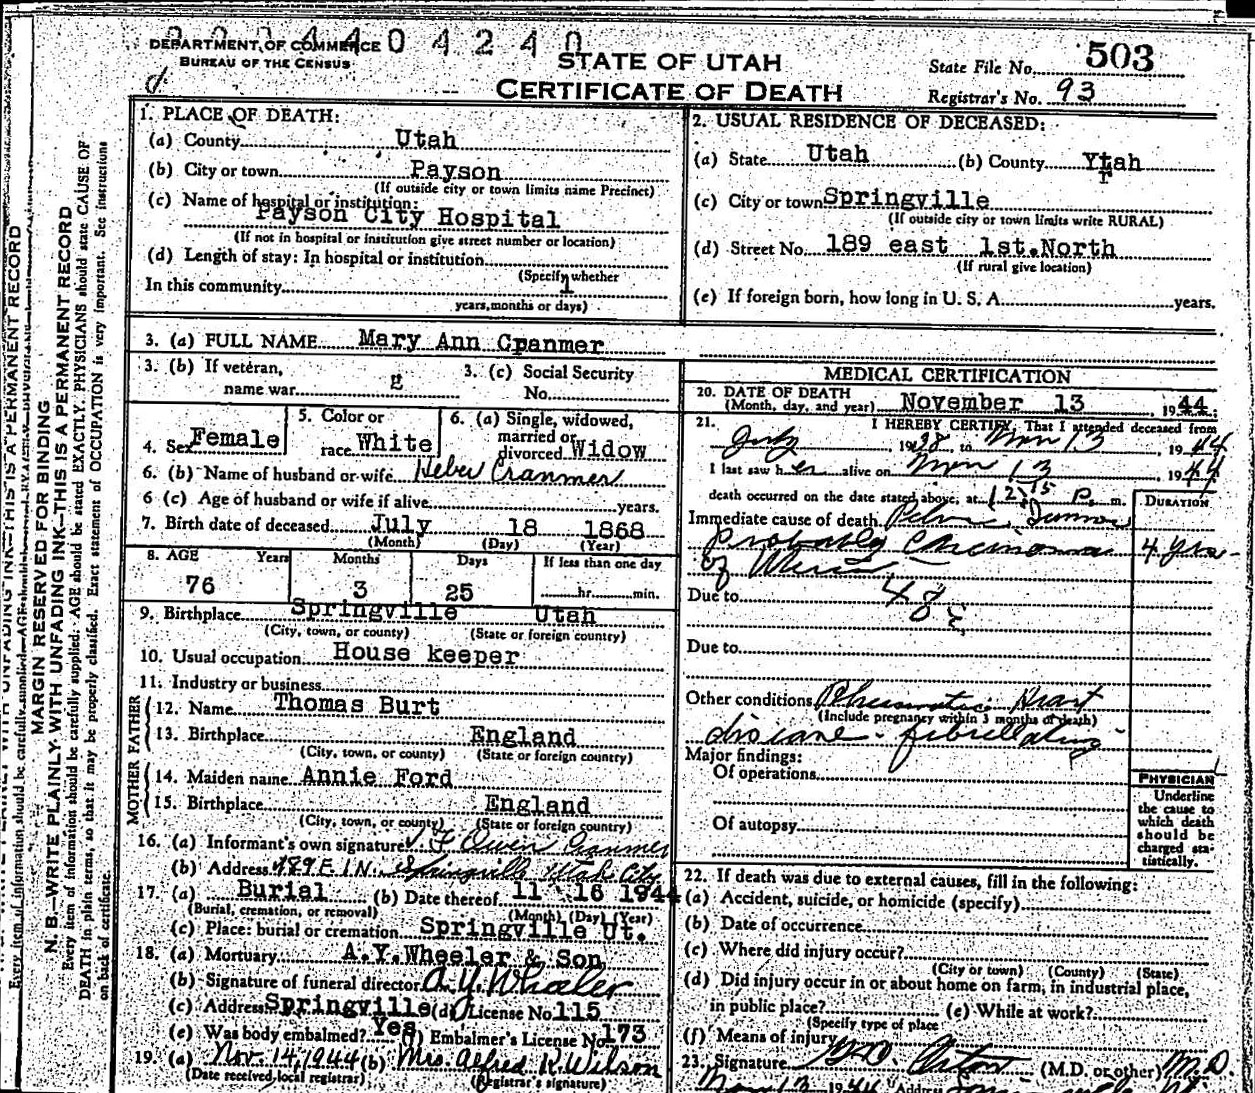 DEPARTMENT OF COMMERCE
BUREAU OF THE CENSUS
04240
STATE OF UTAH
CERTIFICATE OF DEATH
State File No. 503
Registrar's No. 93
MARGIN RESERVED FOR BINDING
N. B.—WRITE PLAINLY WITH UNFADING INK—THIS IS A PERMANENT RECORD
Every item of information should be carefully supplied. AGE should be stated EXACTLY. PHYSICIANS should state CAUSE OF
DEATH in plain terms, so that it may be properly classified. Exact statement of OCCUPATION is very important. See instructions
on back of certificate.
1. PLACE OF DEATH:
(a) County Utah
(b) City or town Payson
(If outside city or town limits name Precinct)
(c) Name of hospital or institution:
Payson City Hospital
(If not in hospital or institution give street number or location)
(d) Length of stay: In hospital or institution
(Specify whether
In this community 1
years, months or days)
2. USUAL RESIDENCE OF DECEASED:
(a) State Utah (b) County Ytah
r
(c) City or town Springville
(If outside city or town limits write RURAL)
(d) Street No. 189 east 1st.North
(If rural give location)
(e) If foreign born, how long in U. S. A. years.
3. (a) FULL NAME Mary Ann Cpanmer
3. (b) If veteran,
name war
3. (c) Social Security
No.
4. Sex Female
5. Color or
race White
6. (a) Single, widowed,
married or
divorced Widow
6. (b) Name of husband or wife Heber Cranmer
6 (c) Age of husband or wife if alive years.
7. Birth date of deceased July 18 1868
(Month) (Day) (Year)
8. AGE Years Months Days If less than one day
76 3 25 hr. min.
9. Birthplace Springville Utah
(City, town, or county) (State or foreign country)
10. Usual occupation House keeper
11. Industry or business
FATHER
12. Name Thomas Burt
13. Birthplace England
(City, town, or county) (State or foreign country)
MOTHER
14. Maiden name Annie Ford
15. Birthplace England
(City, town, or county) (State or foreign country)
16. (a) Informant's own signature Owen Cranmer
(b) Address 189 E 1 N. Springville Utah City
17. (a) Burial (b) Date thereof 11 16 1944
(Burial, cremation, or removal) (Month) (Day) (Year)
(c) Place: burial or cremation Springville Ut.
18. (a) Mortuary A.Y.Wheeler & Son
(b) Signature of funeral director A.Y. Wheeler
(c) Address Springville (d) License No. 115
(e) Was body embalmed? Yes (f) Embalmer's License No. 173
19. (a) Nov. 14, 1944 (b) Mrs. Alfred R. Wilson
(Date received local registrar) (Registrar's signature)
MEDICAL CERTIFICATION
20. DATE OF DEATH
(Month, day, and year) November 13, 1944
21. I HEREBY CERTIFY, That I attended deceased from
July, 1938, to Nov 13, 1944
I last saw her alive on Nov 13, 1944
death occurred on the date stated above, at 12:15 P. m.
DURATION
Immediate cause of death Pelvic Tumor
probably Carcinoma 4 yrs-
of Uterus
Due to 48
Due to
Other conditions Rheumatic Heart
(Include pregnancy within 3 months of death)
disease - fibrillating
Major findings:
Of operations
Of autopsy
PHYSICIAN
Underline
the cause to
which death
should be
charged sta-
tistically.
22. If death was due to external causes, fill in the following:
(a) Accident, suicide, or homicide (specify)
(b) Date of occurrence
(c) Where did injury occur?
(City or town) (County) (State)
(d) Did injury occur in or about home on farm, in industrial place,
in public place? (e) While at work?
(Specify type of place
(f) Means of injury
23. Signature (M.D. or other) M.D.
Nov 13 1944 Address